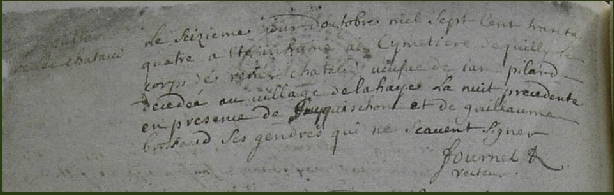 Le seizieme jour d'octobre mil sept cent trante
quatre a este inhumé au Cymetiere
corps de chatel veufue de jan pilard
decedeé au village delahaye la nuit precedente
en presence de guischon et de guillaume
ses gendres qui ne scauent signer
Journel R
recteur